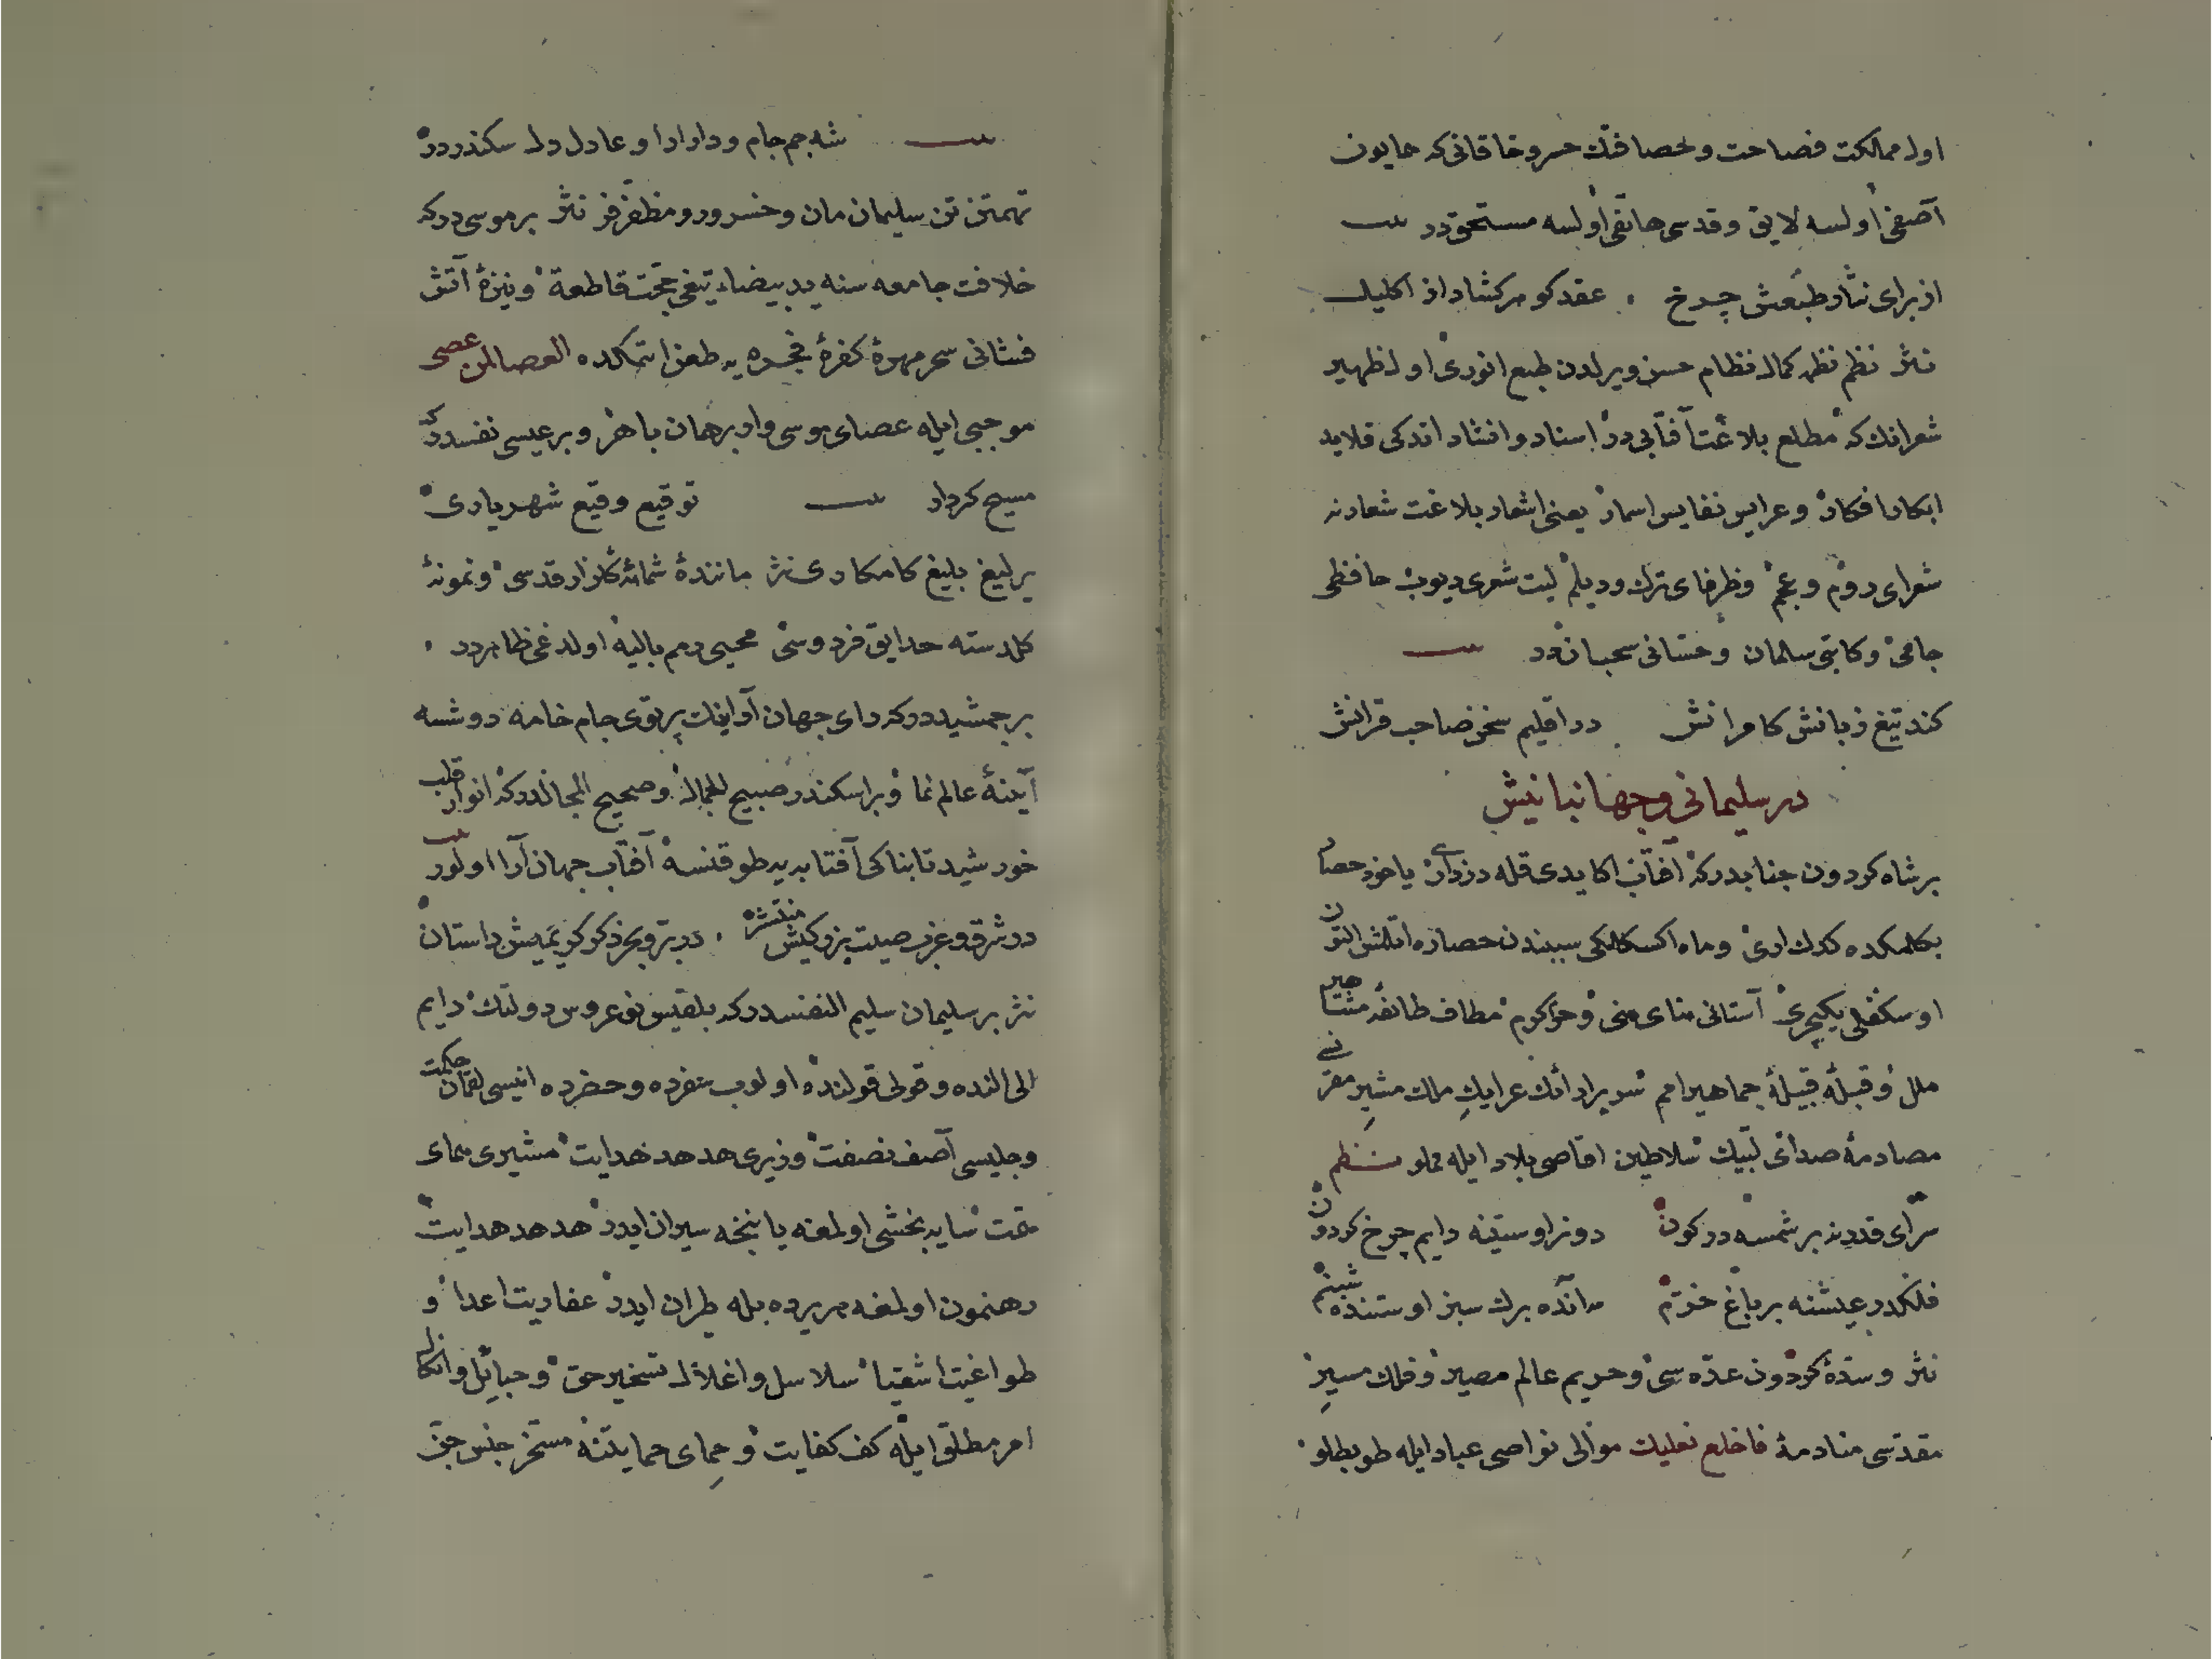 اول ممالكت فصاحت و حصافتك خسرو خاقانی كه همایون
آصفی اولسه لایق و قدسی هاتفی اولسه مستحقدر بیت
از برای نثار طبعش چرخ عقد گوهر گشاد از اكلیل
نثر نظم نظم كمال نظام حسن ویرلدن طبع انوری اول ظهیر
شعرانك كه مطلع بلاغت آفتابی در اسناد و انشاد اندكی قلاید
ابكار افكار و عرایس نفایس اسمار یعنی اشعار بلاغت شعارنه
شعرای روم و عجم و ظرفای ترك و دیلم لیت شعری دیوب حافظی
جامی و كاتبی سلمان و حسانی سحباندر بیت
كند تیغ زبانش كامرانش در اقلیم سخن صاحب قرانش
در سلیمانی و جهانبانیش
بر شاه كردون جنابدر كه آفتاب اكا یدی قله دزداری یاخود حصار
بكلمكده كدك اری و ماه اكسكلكی سببندن حصاره اتلش التون
اوسكفلی یكیچری آستانی منای منی و حرا كرم مطاف طائفه مشاهیر
ملل و قبله قبیله جماهیر امم سریر ارائك عرایك ملك مشیر مقرنی
مصادمه صدای لبیك سلاطین اقاصی بلاد ایله مملو نظم
سرای قدرینه بر شمسه در كون دونر اوستینه دایم چرخ كردون
فلكدر عیشنه بر باغ خرم آنده برك سبز اوستنده شبنم
نثر و سده كردون عده سی و حریم عالم مصیر و فلك مسیر
مقدسی منادمه فاخلع نعلیك موالی نواصی عباد ایله طوبطلو
بیت شه جم جام و دارا را و عادل دل سكندردر
تهمتن تن سلیمان مان و خسرو رو مظفر فر نثر بر موسی دركه
خلافت جامعه سنه ید بیضاء تیغی حجت قاطعة و نیزهٔ آتش
فشانی سحر مهرهٔ كفرهٔ فجره یه طعن اتمكده العصا لمن عصی
موجبی ایله عصای موسی وار برهان باهر و بر عیسی نفسدر كه
مسیح كردار بیت توقیع وقیع شهریاری
یرلیغ بلیغ كامكاری نثر مانندهٔ شمائه گلزار قدسی و نمونهٔ
كلدسته حدایق فردوسی محیی رمم بالیه اولدغی ظاهردر
بر جمشیددر كه رای جهان آرانك پرتوی جام خامه دوشسه
آینهٔ عالم نما و بر اسكندر صبیح الجمال و صحیح المجالدر كه انوار قلب
خورشید تابناكی آفتابه یه طوقنسه آفتاب جهان آرا اولور بیت
در شرق و غرب صیت بزركیش منتشر در بر و بحر ذكر كریمیش داستان
نثر بر سلیمان سلیم النفسدر كه بلقیس نو عروس دولتك دایم
الی النده و قولی قولنده اولوب سفرده و حضرده انیسی لقمان حكمت
و جلیسی آصف نصفت وزیری هدهد هدایت مشیری همای
همت سایه بخشی اولمغنه یاننجه سیران ایدر هدهد هدایت
رهنمون اولمغه هر یرده بله طیران ایدر عفاریت اعدا و
طواغیت اشقیا سلاسل و اغلال تسخیر حق و حبائل وانكال
امر مطلق ایله كف كفایت و حمای حمایلتنه مسخر جنس جن